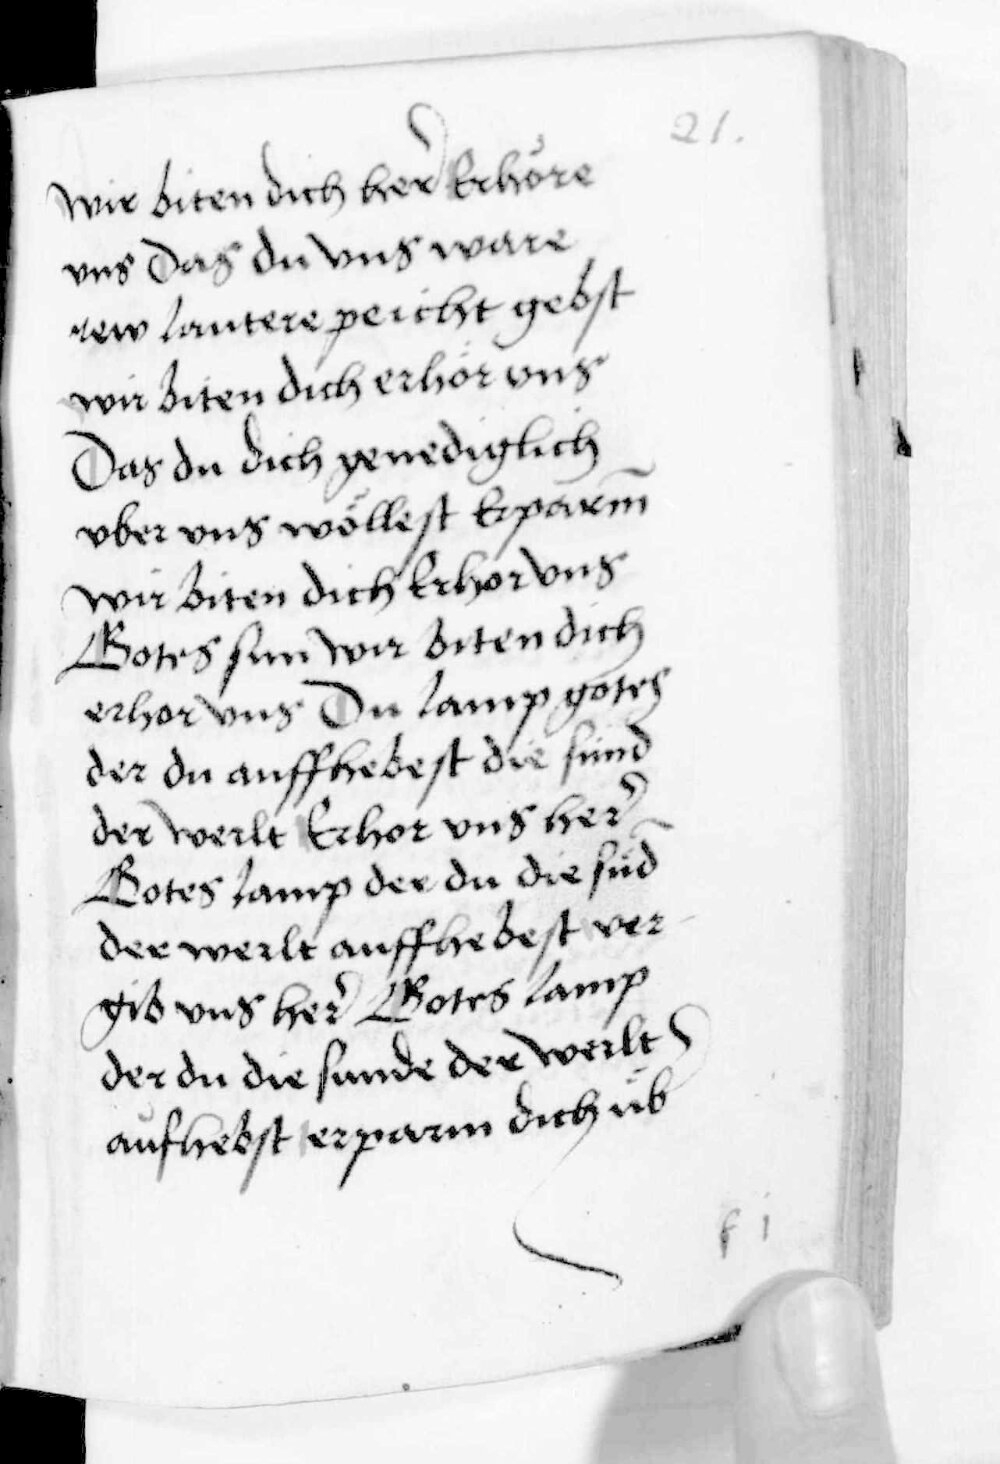 21.
wir biten dich her Erhöre
vns Das du vns ware
rew lautere peicht gebst
wir biten dich erhör vns
Das du dich genediglich
vber vns wöllest Erparm̄
wir biten dich Erhor vns
Gotes sun wir biten dich
erhor vns Du lamp gotes
der du auffhebest die sünd
der werlt Erhor vns her
Gotes lamp der du die sūd
der werlt auffhebest ver
gib vns her Gotes lamp
der du die sunde der werlt
aufhebst erparm dich üb
f i